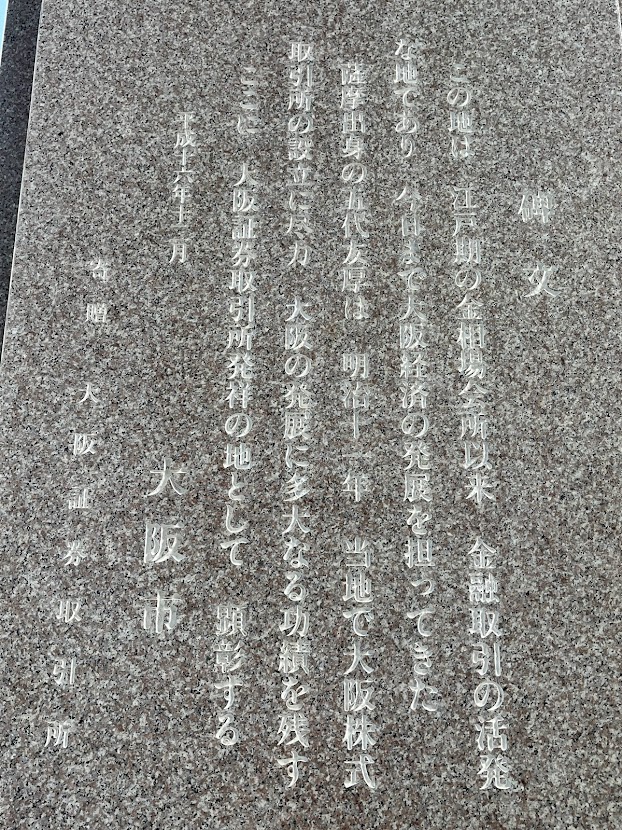 碑文
この地は 江戸期の金相場会所以来 金融取引の活発
な地であり 今日まで大阪経済の発展を担ってきた
薩摩出身の五代友厚は 明治十一年 当地で大阪株式
取引所の設立に尽力 大阪の発展に多大なる功績を残す
ここに 大阪証券取引所発祥の地として 顕彰する
平成十六年十二月
大阪市
寄贈 大阪証券取引所